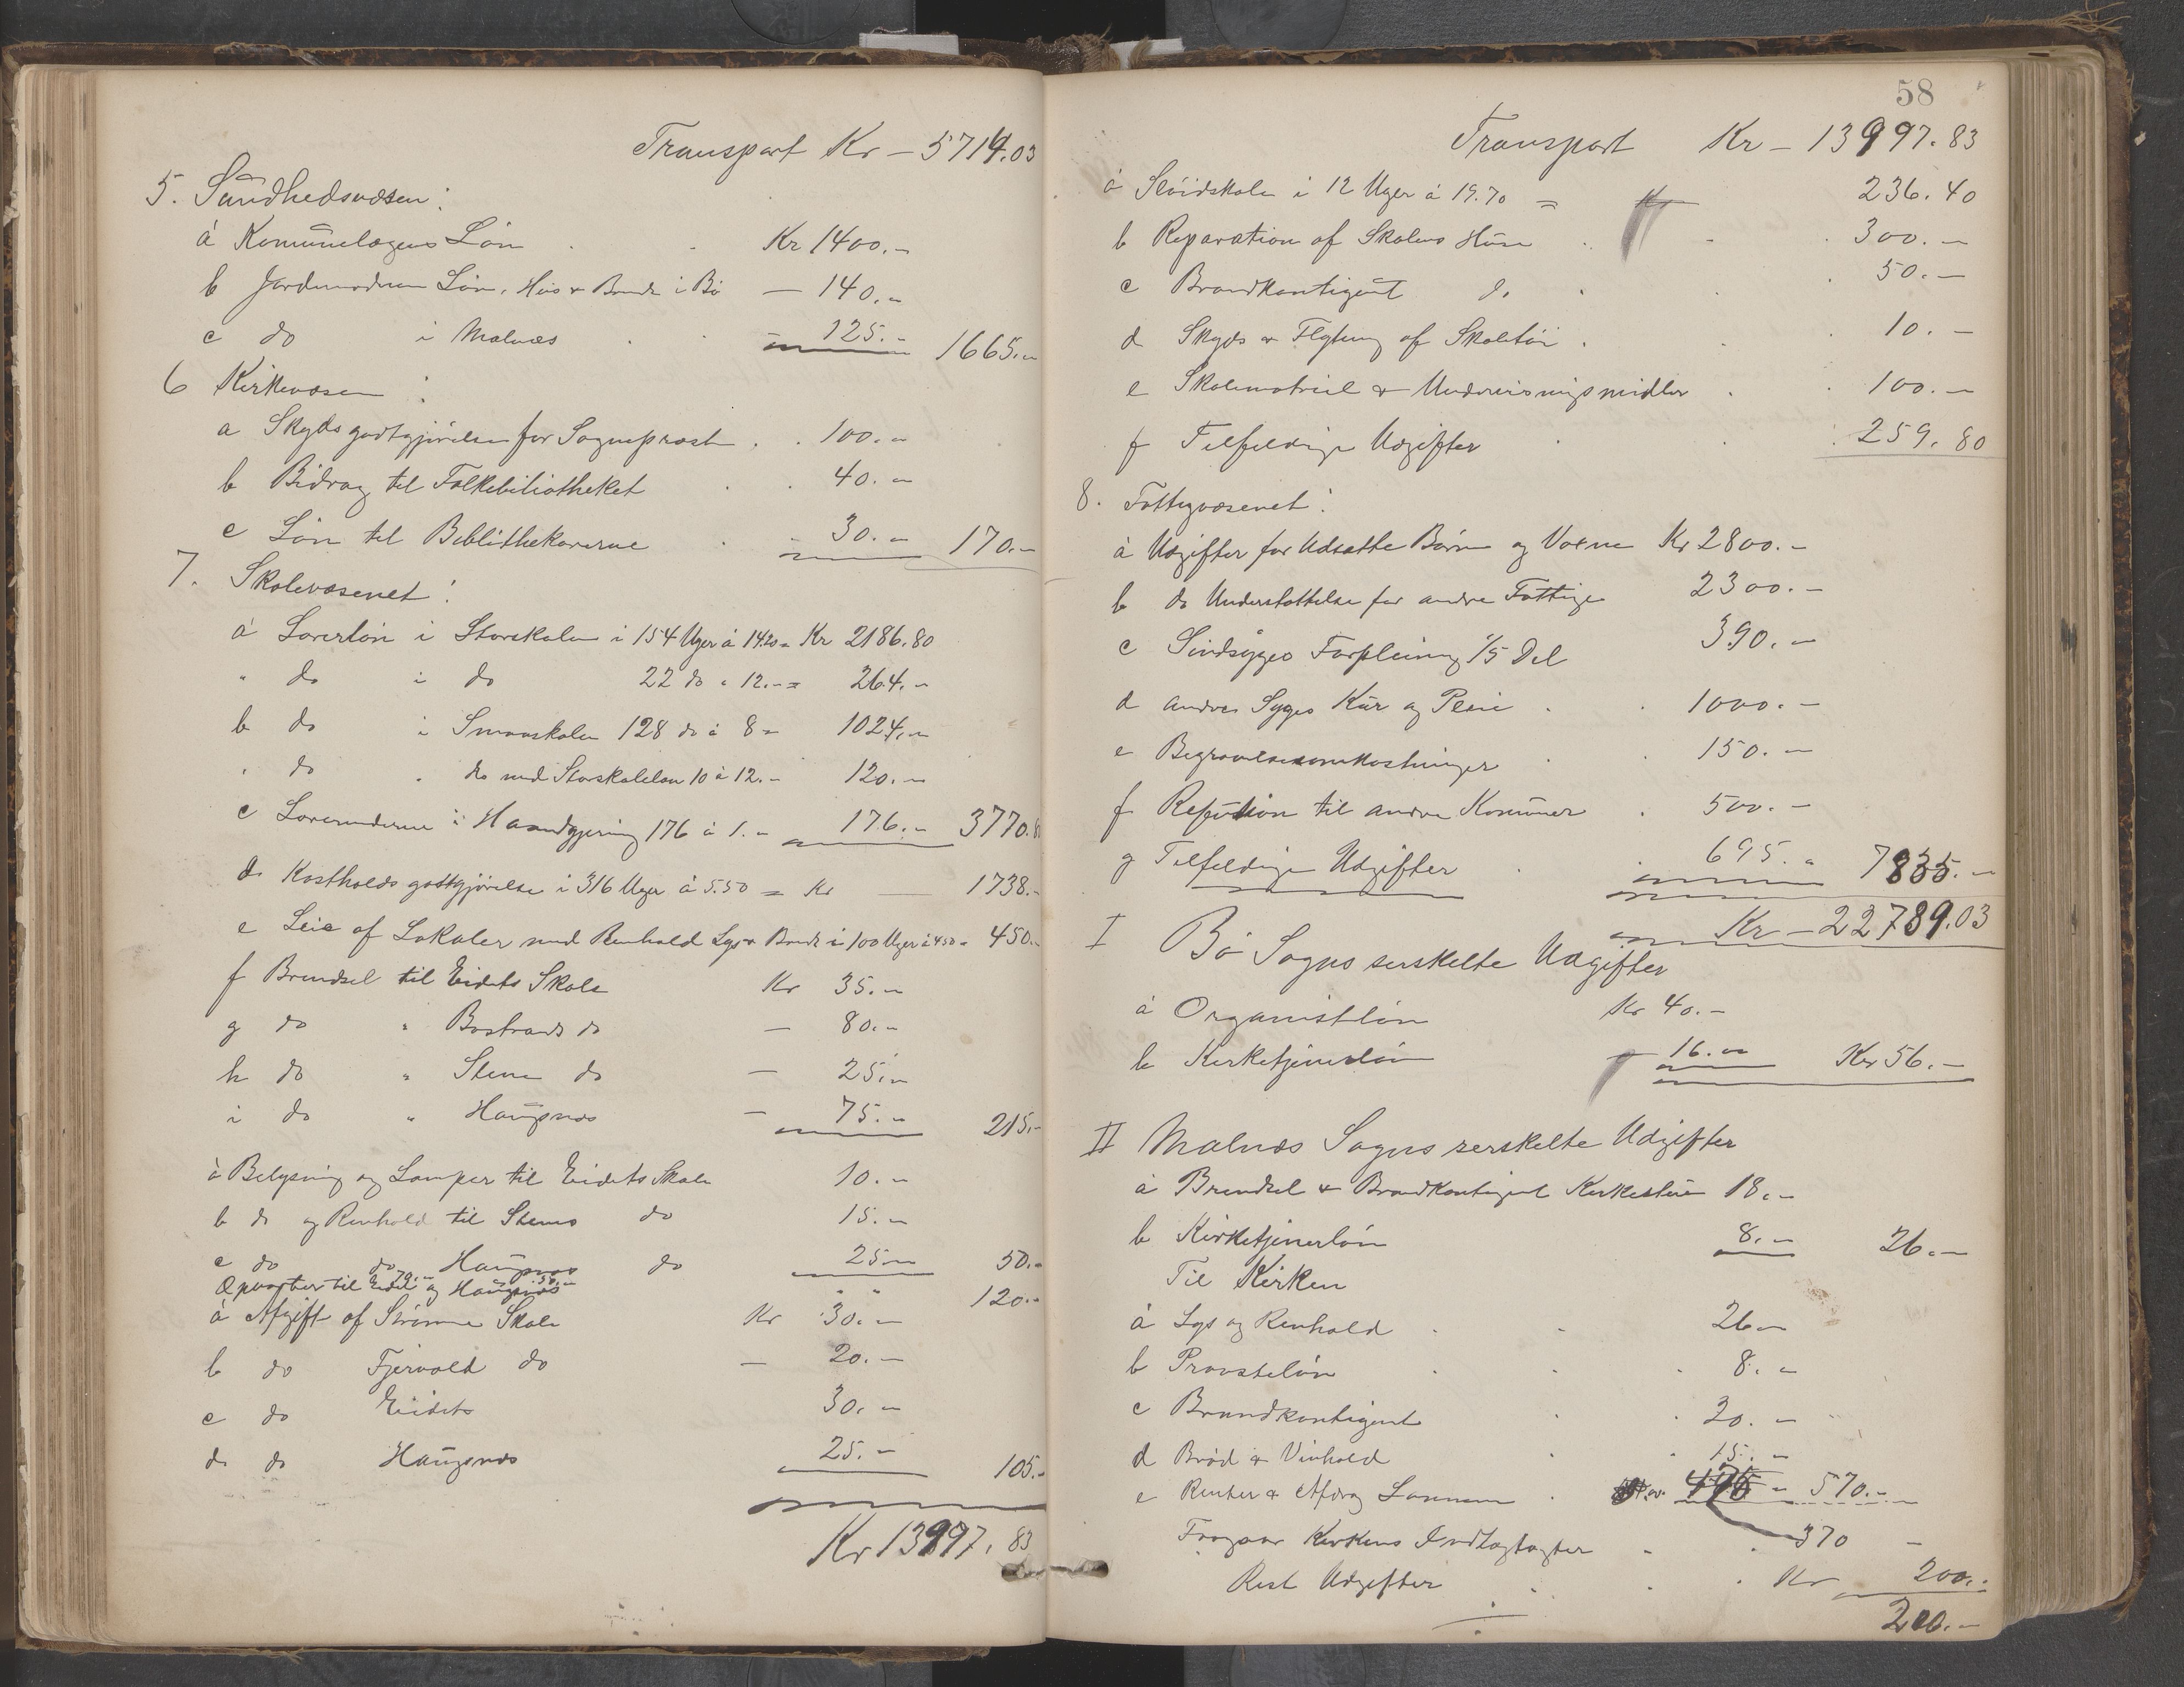 Transport Kr – 5714.03
5. Sundhedsvæsen:
a Komunelægens Løn Kr 1400.-
b Jordmodrens Løn, Hus & Brænde i Bø — 140.-
c do i Malnæs - 125.- 1665.-
6 Kirkevæsen:
a Skydsgodtgjørelse for Sogneprest . . 100.-
b Bidrag til Folkebiliotheket 40.-
c Løn til Biblithekarerne 30.- 170.-
7. Skolevæsenet:
a Lærerløn i Storskolen i 154 Uger á 14.20 = Kr 2186.80
" do i do 22 do á 12.- = 264.-
b do i Smaaskolen 128 do á 8 = 1024.-
" do " do med Storskoleløn 10 á 12.- 120.-
c Lærerinderne i Haandgjerning 176 á 1.- 176.- 3770.80
d. Kostholdsgodtgjørelse i 316 Uger á 5.50 = Kr — 1738.-
e Leie af Lokaler med Renhold Lys & Brænde i 100 Uger á 4.50 = 450.-
f Brendsel til Eidets Skole Kr 35.-
g do " Bøstrands do — 80.-
h do " Stene do — 25.-
i do " Haugsnæs — 75.- 215.-
a Belysning og Lamper til Eidets Skole 10.-
b do og Renhold til Stenes do 15.-
c do do Haugsnæs do 25.- 50.-
Opvarter til Eidet 70.- og Haugsnæs 50.- " " 120.-
a Afgift af Strømme Skole Kr 30.-
b do Fjervold do — 20.-
c do Eidets 30.-
d. do Haugsnæs 25.- 105.-
Kr 13997.83
58
Transport Kr – 13997.83
a Sløidskole i 12 Uger á 19.70 = Kr 236.40
b Reparation af Skolens Huse 300.-
c Brandkontigent do 50.-
d Skyds & Flytning af Skoletøi . 10.-
e Skolematriel & Undervisningsmidler 100.-
f Tilfeldige Udgifter 259.80
8. Fattigvæsenet:
a Udgifter for Udsatte Børn og Voxne Kr 2800.-
b do Understøttelse for andre Fattige 2300.-
c Sindsyges Forpleining 1/5 Del 390.-
d andres Syges Kur og Pleie 1000.-
e Begravelsesomkostninger 150.-
f Refution til andre Komuner 500.-
g Tilfeldige Udgifter 695.- 7835.-
Kr – 22789.03
I Bø Sogns serskelte Udgifter
a Organistløn Kr 40.-
b Kirketjenerløn 16.- Kr 56.-
II Malnæs Sogns serskelte Udgifter
a Brendsel & Brandkontigent Kirkestuen 18.-
b Kirketjenerløn 8.- 26.-
Til Kirken
a Lys og Renhold 26.-
b Provsteløn 8.-
c Brandkontigent 20.-
d Brød & Vinhold 15.-
e Renter & Afdrag Laanene 570.-
Fragaar Kirkens Indtægter 370 -
Rest Udgifter Kr 200.-
200.-